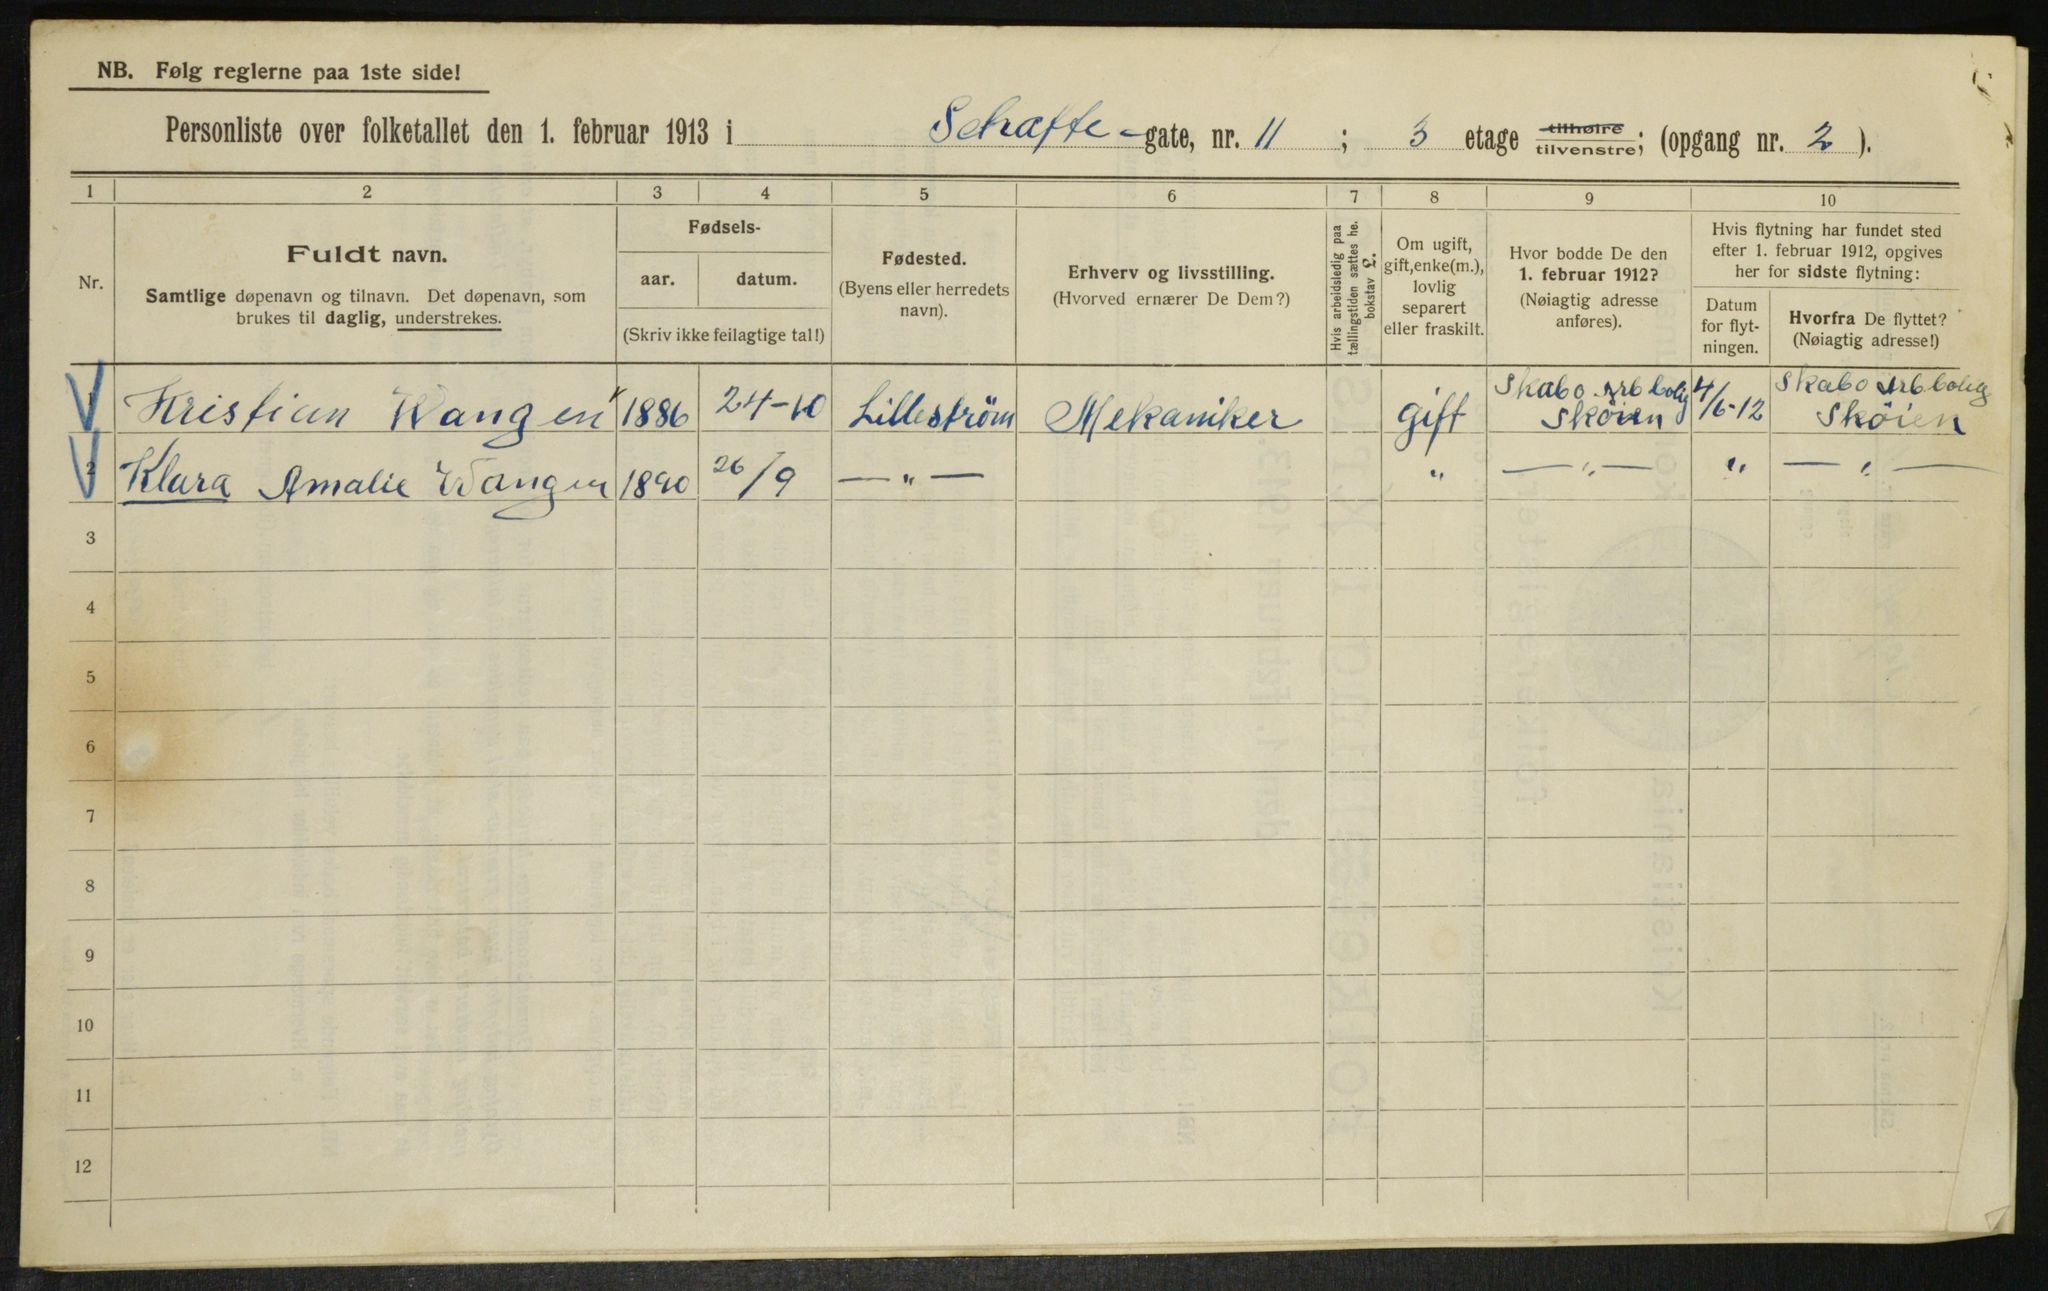 NB. Følg reglerne paa 1ste side!
Personliste over folketallet den 1. februar 1913 i Schafte-gate, nr. 11 ; 3 etage tilhøire tilvenstre; (opgang nr. 2 ).
1 2 3 4 5 6 7 8 9 10
Nr.
Fuldt navn.
Samtlige døpenavn og tilnavn. Det døpenavn, som
brukes til daglig, understrekes.
Fødsels-
aar. datum.
(Skriv ikke feilagtige tal!)
Fødested.
(Byens eller herredets
navn).
Erhverv og livsstilling.
(Hvorved ernærer De Dem?)
Hvis arbeidsledig paa
tællingstiden sættes he.
bokstav L.
Om ugift,
gift, enke(m.),
lovlig
separert
eller fraskilt.
Hvor bodde De den
1. februar 1912?
(Nøiagtig adresse
anføres).
Hvis flytning har fundet sted
efter 1. februar 1912, opgives
her for sidste flytning:
Datum
for flyt-
ningen.
Hvorfra De flyttet?
(Nøiagtig adresse!)
1 Kristian Wangen 1886 24-10 Lilleström Mekaniker gift Skabo Arb bolig Sköien 4/6-12 Skabo Arb bolig Sköien
2 Klara Amalie Wangen 1890 26/9 — „ — „ — „ — „ — „ —
3
4
5
6
7
8
9
10
11
12